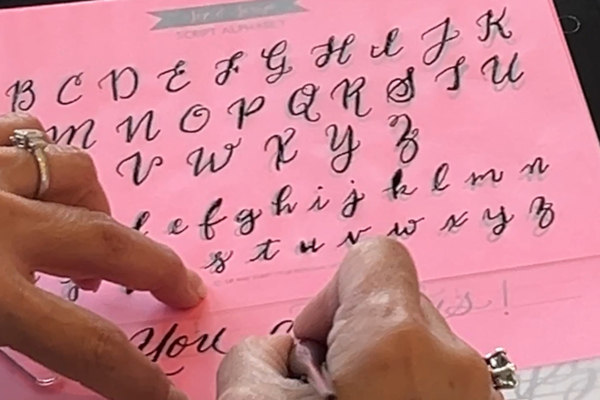 SCRIPT ALPHABET
B C D E F G H I J K
M N O P Q R S T U
V W X Y Z
e f g h i j k l m n
s t u v w x y z
You